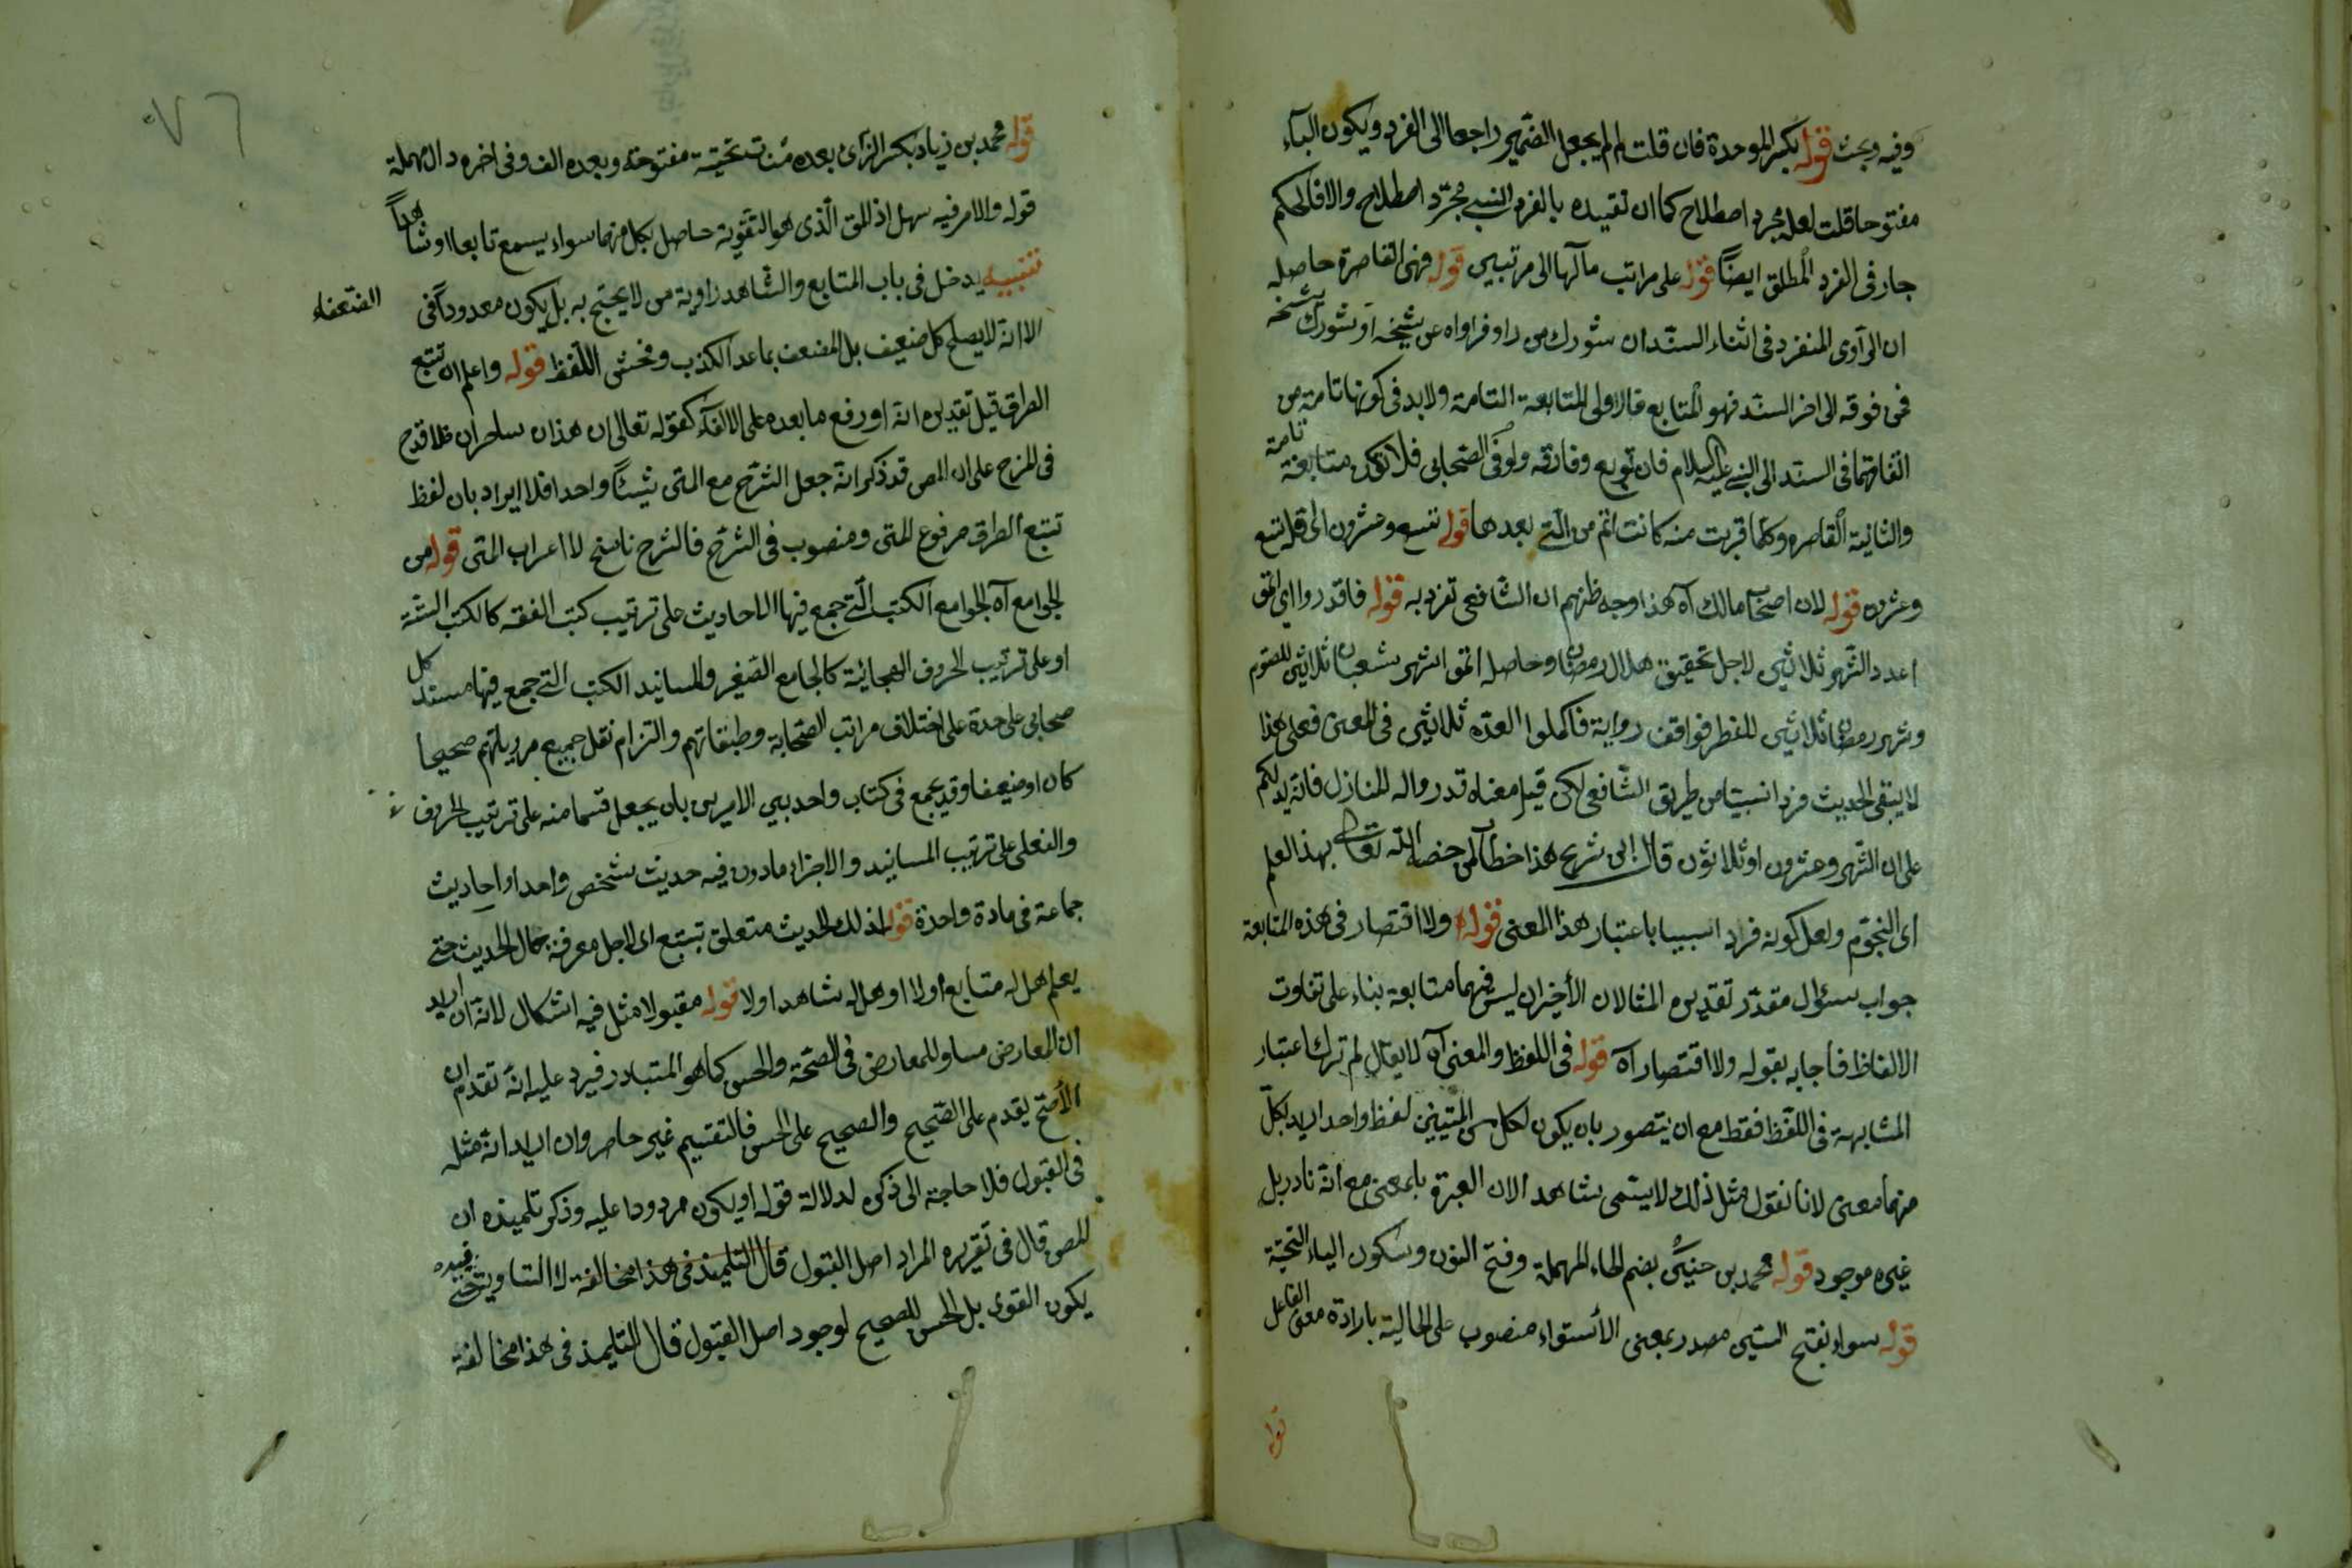 وفيه وبحث قوله بكسر الموحدة فان قلت لم لم يجعل الضمير راجعا الى الفرد ويكون الباء
مفتوحا قلت لعله مجرد اصطلاح كما ان تقييده بالفرد النسبي مجرّد اصطلاح والا فالحكم
جار فى الفرد المطلق ايضاً قوله على مراتب مآلها الى مرتبتين قوله فهى القاصرة حاصله
ان الرآوى المنفرد فى اثناء السند ان شورك من راو فرواه عن شيخه او شورك شيخه
فمن فوقه الى اخر السند فهو المتابع فالاولى المتابعة التامة ولا بد فى كونها تامة من
اتفاقهما فى السند الى النبى عليه السلام فان توبع وفارقه ولو فى الصحابى فلا تكون متابعة تامة
والثانية القاصره وكلما قربت منه كانت اتم من التى بعدها قوله تسع وعشرون الى قوله تسع
وعشرون قوله لان اصحاب مالك آه هذا وجه ظنهم ان الشافعى تفرد به قوله فاقدروا اى اتموا
اعدد الشهر ثلاثين لاجل تحقيق هلال رمضان وحاصله اتموا شهر شعبان ثلاثين للصوم
وشهر رمضان ثلاثين للفطر فوافق رواية فاكملوا العدة ثلاثين فى المعنى فعلى هذا
لا يبقى الحديث فردا نسبيّا من طريق الشافعى لكن قيل معناه قدروا له المنازل فانه يدلكم
على ان الشهر وعشرون او ثلاثون قال ابن شريح هذا خطاب لمن خصه الله تعالى بهذا العلم
اى النجوم ولعل كونه فردا نسبيا باعتبار هذا المعنى قوله ولا اقتصار فى هذه المتابعة
جواب سؤال مقدّر تقديره المثالان الأخيران ليس فيهما متابعة بناء على تفاوت
الالفاظ فاجابه بقوله ولا اقتصار آه قوله فى اللفظ والمعنى آه لا يقال لم ترك اعتبار
المشابهة فى اللفظ فقط مع ان يتصور بان يكون لكل من المتنين لفظ واحد اريد بكلّ
منهما معنى لانا نقول مثل ذلك لا يسمى شاهدا لان العبرة بالمعنى مع انه نادر بل
غيره موجود قوله محمد بن حنين بضم الحاء المهملة وفتح النون وسكون الياء التحتية
قوله سواء بفتح السين مصدر بمعنى الأستواء منصوب على الحالية بارادة معنى الفاعل
قوله
قوله محمد بن زياد بكسر الزآى بعده مثنات تحتية مفتوحة وبعده الف وفى اخره دال مهملة
قوله والامر فيه سهل اذ المق الذى هو التقوية حاصل بكل منهما سواء يسمع تابعا او شاهداً
تنبيه يدخل فى باب المتابع والشاهد رواية من لا يحتج به بل يكون معدوداً فى الضعفاء
الا انه لا يصلح كل ضعيف بل المضعف بما عدا الكذب وفحش اللفظ قوله واعلم ان تتبع
الطرق قيل تقديره انه او رفع ما بعده على الالغاء كقوله تعالى ان هذان ساحران فلا قدح
فى المزج على ان المص قد ذكر انه جعل الشرح مع المتن شيئاً واحدا فلا ايراد بان لفظ
تتبع الطرق مرفوع المتن ومنصوب فى الشرح فالشرح ناسخ لا اعراب المتن قوله من
الجوامع آه الجوامع الكتب التى جمع فيها الاحاديث على ترتيب كتب الفقه كالكتب الستة
او على ترتيب الحروف الهجائية كالجامع الصغير والمسانيد الكتب التى جمع فيها مسند كل
صحابى على حدة على اختلاف مراتب الصحابة وطبقاتهم والتزام نقل جميع مروياتهم صحيحا
كان او ضعيفا وقد يجمع فى كتاب واحد بين الامرين بان يجعل قسما منه على ترتيب الحروف
والفعلى على ترتيب المسانيد والاجزاء ما دون فيه حديث شخص واحد او احاديث
جماعة فى مادة واحدة قوله لذلك الحديث متعلق بتتبع اى لاجل معرفة حال الحديث حتى
يعلم هل له متابع اولا او هل له شاهد اولا قوله مقبولا مثل فيه اشكال لانه ان اريد
ان المعارض مساو للمعارض فى الصحة والحسن كما هو المتبادر فيرد عليه انه تقدم ان
الأصح يقدم على الصحيح والصحيح على الحسن فالتقسيم غير حاصر وان اريد انه مثله
فى القبول فلا حاجة الى ذكره لدلالة قوله او يكون مردودا عليه وذكر تلميذه ان
المص قال فى تقريره المراد اصل القبول قال التلميذ فى هذا مخالفة لا التساوى فيه حتى
يكون القوى بل الحسن للصحيح لوجود اصل القبول قال التلميذ فى هذا مخالفة